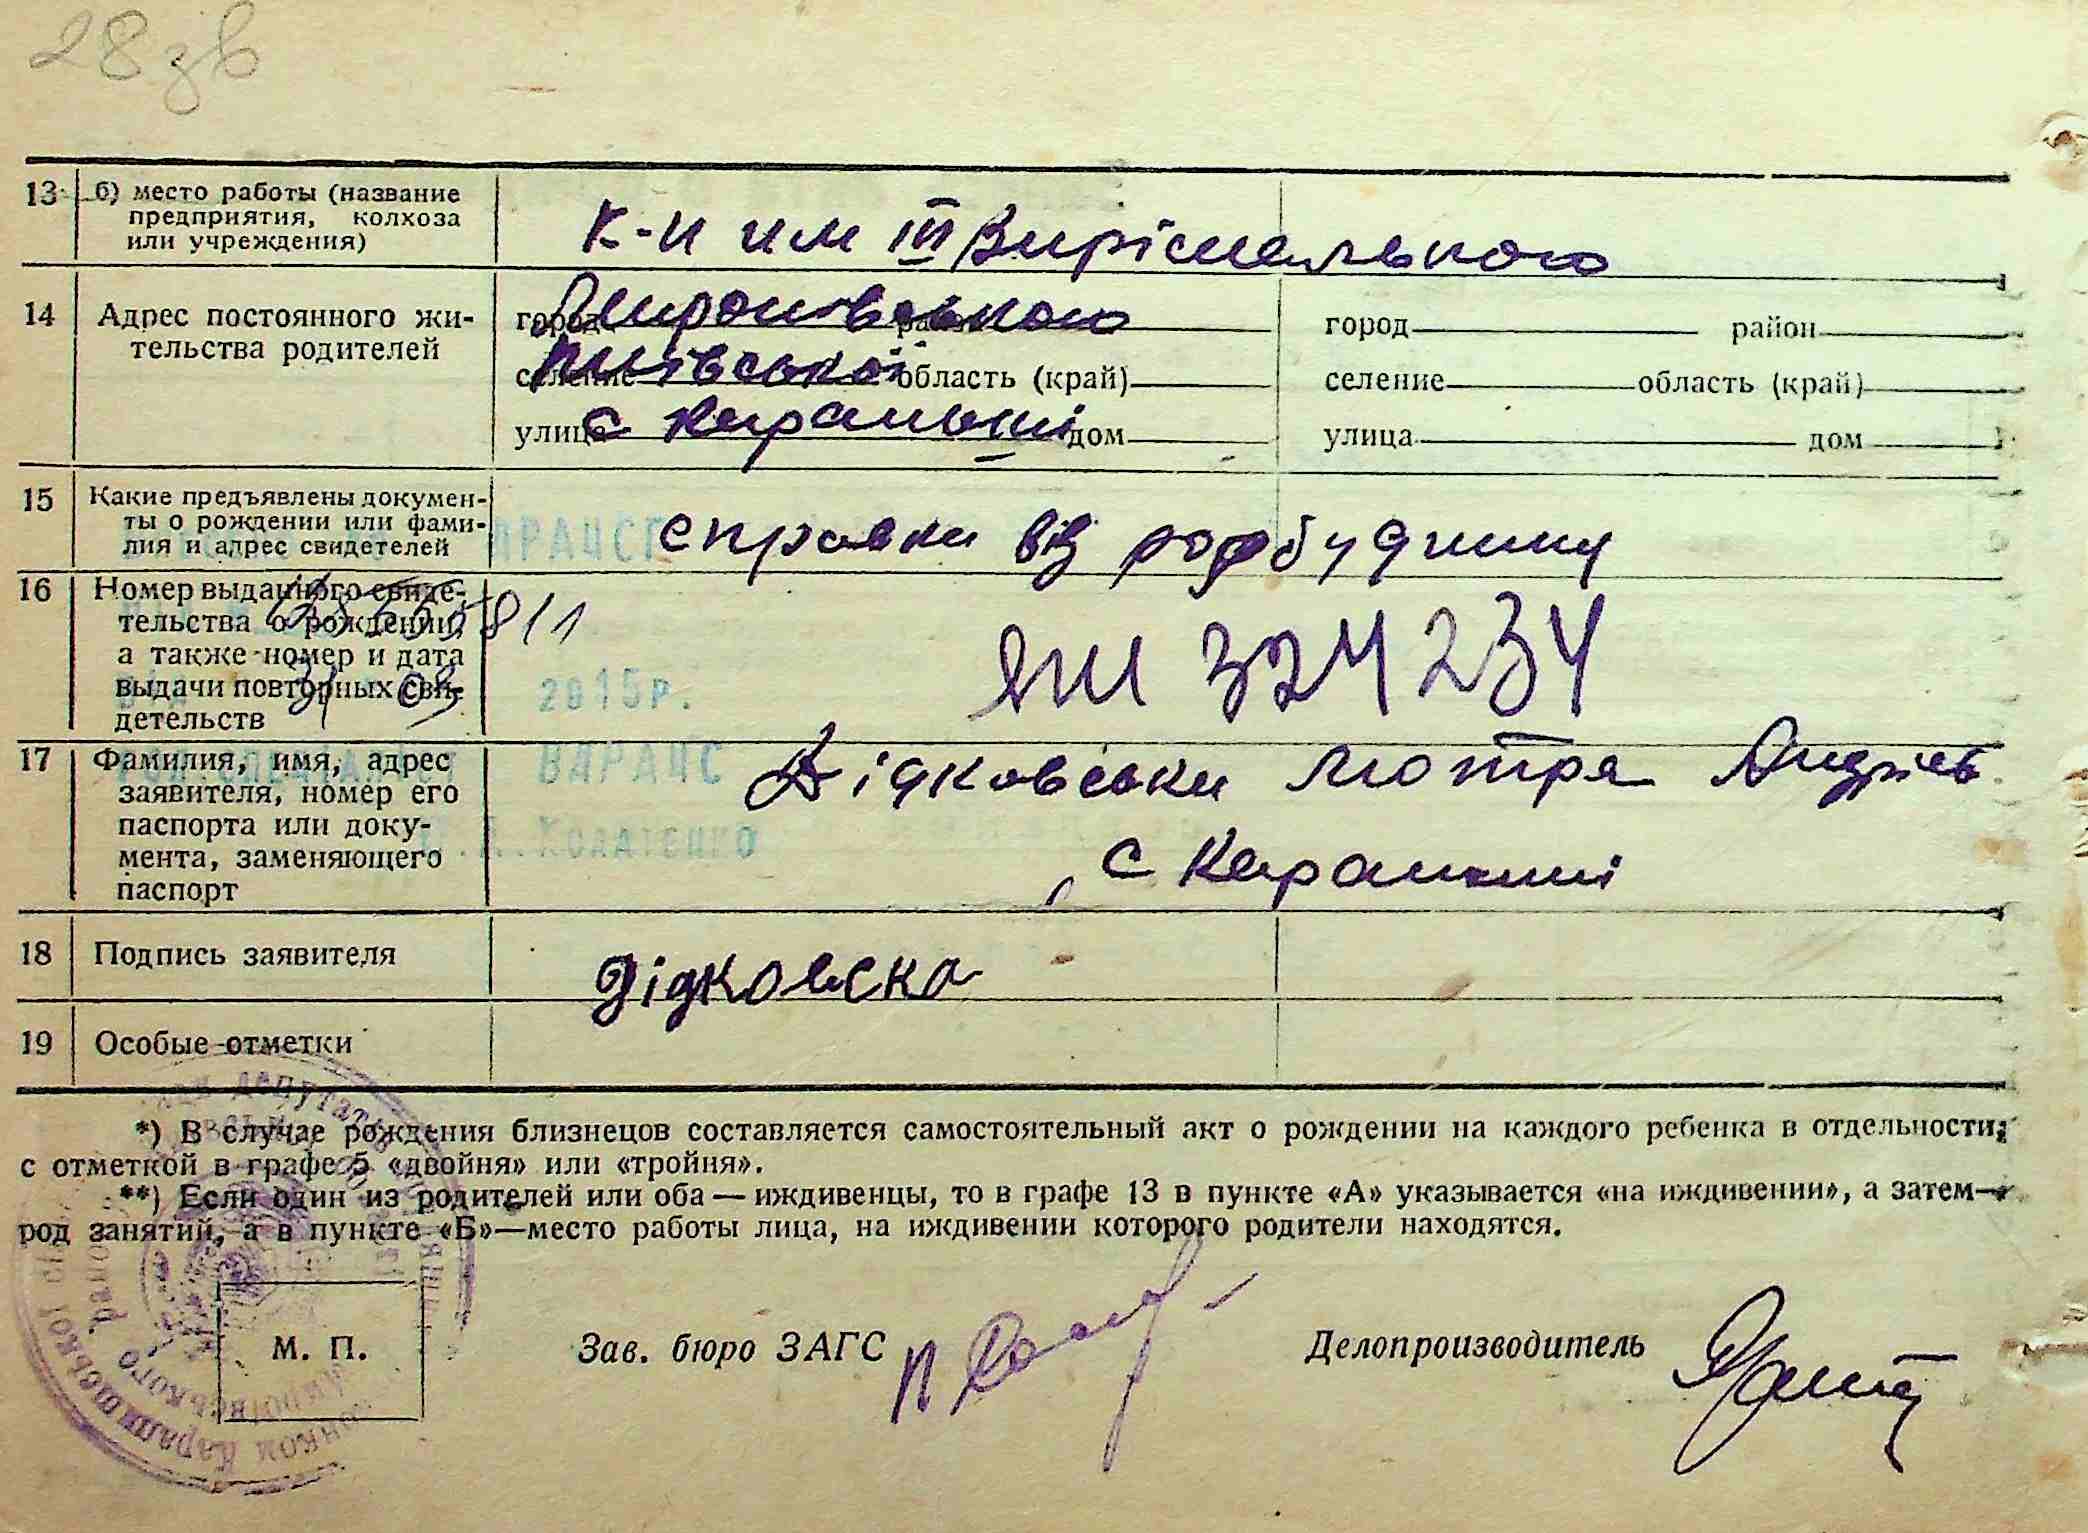 28зв
13 б) место работы (название
предприятия, колхоза
или учреждения)
К-п им III Вирішального
14 Адрес постоянного жи-
тельства родителей
город Миронівського район
селение Київської область (край)
улица с Карапиші дом
город район
селение область (край)
улица дом
15 Какие предъявлены докумен-
ты о рождении или фами-
лия и адрес свидетелей
справка від родбудинку
16 Номер выданного свиде-
тельства о рождении,
а также номер и дата
выдачи повторных сви-
детельств
811
31 08
2015р.
ЯШ 324234
17 Фамилия, имя, адрес
заявителя, номер его
паспорта или доку-
мента, заменяющего
паспорт
ВДРАЦС
Дідковська Мотря Андрієв
с Карапиші
18 Подпись заявителя
Дідковска
19 Особые отметки
*) В случае рождения близнецов составляется самостоятельный акт о рождении на каждого ребенка в отдельности,
с отметкой в графе 5 «двойня» или «тройня».
**) Если один из родителей или оба — иждивенцы, то в графе 13 в пункте «А» указывается «на иждивении», а затем—
род занятий, а в пункте «Б»—место работы лица, на иждивении которого родители находятся.
М. П.
Зав. бюро ЗАГС
Делопроизводитель